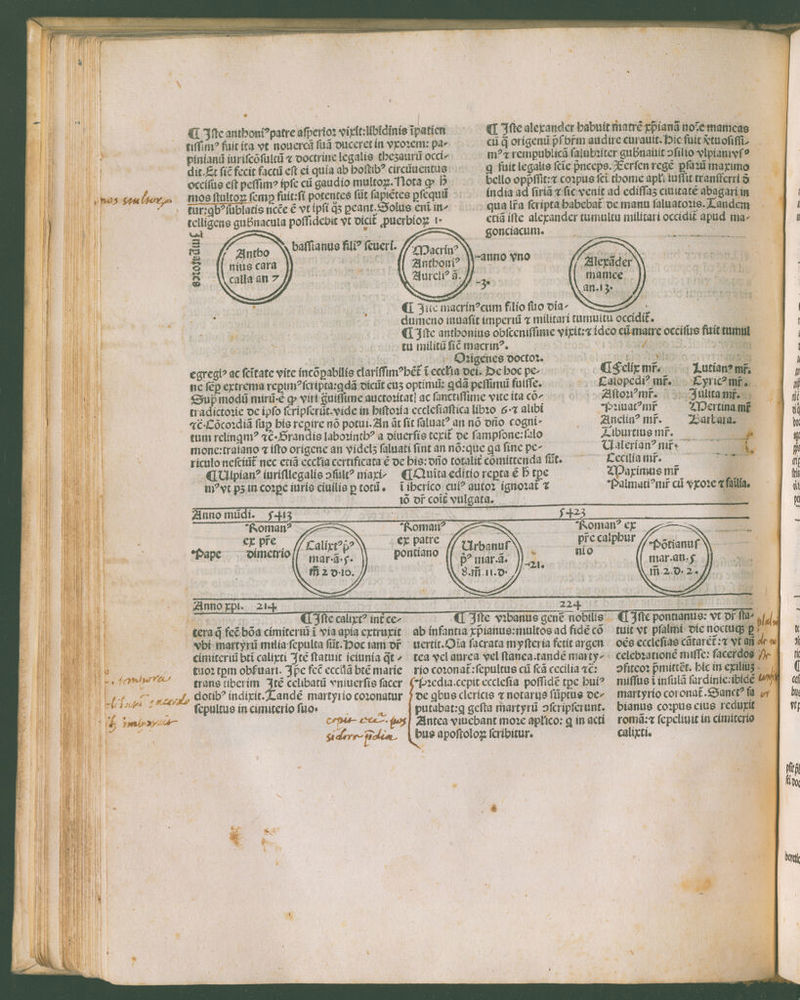 ¶ Iste anthoni⁹ patre asperior vixit: libidinis ĩpatien
tissim⁹ fuit ita vt nouercã suã duceret in vxorem: pa-
pinianũ iuriscõsultũ ⁊ doctrine legalis thezaurũ occi-
dit. Et sic̃ fecit factũ est ei quia ab hostib⁹ circũuentus
occisus est pessim⁹ ipse cũ gaudio multoꝝ. Nota ꝙ
mos stultoꝝ semꝑ fuit: si potentes sũt sapiẽtes ꝑsequũ
tur: qb⁹ sublatis nc̃ce ẽ vt ipsi qꝫ peant. Solus eni in-
telligens gubnacula possidebit vt dicit̃ puerbioꝝ 1.
¶ Iste alexander habuit matrẽ xp̃ianã noĩe mameas
cũ q̃ origenũ p̃sbr̃m audire curauit. Hic fuit ṽtuosissi-
m⁹ ⁊ rempublicã salubriter gubnauit ɔsilio vlpiani vs⁹
q fuit legalis scĩe p̃nceps. Xersen regẽ psarũ maximo
bello opp̃ssit: ⁊ corpus sc̃i thome apl̃i iussit transferri ð
india ad siriã ⁊ sic venit ad edissaz ciuitatẽ abagari in
qua lr̃a scripta habebat̃ de manu saluatoris. Tandem
etiã iste alexander tumultu militari occidit̃ apud ma-
gonciacum.
Imꝑatores
Antho
nius cara
calla an 7
bassianus fili⁹ seueri.
Macrin⁹
Anthoni⁹
Aureli⁹ ã.
anno vno
-3-
Alexãder
mamee
an. 13.
¶ Iste macrin⁹ cum filio suo dia-
dumeno inuasit imperiũ ⁊ militari tumultu occidit̃.
¶ Iste anthonius obscenissime vixit: ⁊ ideo cũ matre occisus fuit tumul
tu militũ sic̃ macrin⁹.
Origenes doctor.
egregi⁹ ac scĩtate vite incõpabilis clarissim⁹ hẽt̃ ĩ eccl̃ia dei. De hoc pe-
ne sẽp extrema repim⁹ scripta: qdã dicũt euꝫ optimũ: qdã pessimũ fuisse.
Sup modũ mirũ ẽ ꝙ viri g̃uissime auctoritat̃ ac sanctissime vite ita cõ-
tradictorie de ipso scripserũt. vide in historia ecclesiastica libro 6. ⁊ alibi
⁊c̃. Cõcordiã sup his repire nõ potui. An ãt sit saluat⁹ an nõ dño cogni-
tum relinqm⁹ ⁊c̃. Grandis laborinth⁹ a diuersis texit̃ de sampsone: salo
mone: traiano ⁊ isto origene an videlꝫ saluati sint an nõ: que qa sine pe-
riculo nesciũt̃ nec etiã eccl̃ia certificata ẽ de his: dño totalit̃ cõmittenda sũt.
¶ Ulpian⁹ iurisllegalis ɔsult⁹ maxi-
m⁹ vt pꝫ in corpe iuris ciuilis p totũ.
¶ Quĩta editio repta ẽ h̃ tp̃e
ĩ iherico. cui⁹ autor ignorat̃ ⁊
iõ dr̃ coĩt̃ vulgata.
¶ Felix mr̃.
Calopedi⁹ mr̃.
Astori⁹ mr̃.
Priuat⁹ mr̃.
Anclin⁹ mr̃.
Tiburtius mr̃.
Ualerian⁹ mr̃.
Cecilia mr̃.
Maximus mr̃
Palmati⁹ mr̃ cũ vxore ⁊ failia.
Lutian⁹ mr̃.
Cyric⁹ mr̃.
Julita mr̃.
Mertina mr̃
Barbara.
Anno mũdi. 5413 5423
Pape
Roman⁹
ex pr̃e
dimetrio
Calixt⁹ p̃⁹
mar. ã. 5.
m̃ 2 d. 10.
Roman⁹
ex patre
pontiano
Urbanus
p̃⁹ mar. ã.
8. m̃. 11. d.
-21.
Roman⁹ ex
pr̃e calphur
nio
Põtianus
mar. an. 5
m̃ 2. d. 2.
Anno xpi. 214 224
¶ Iste calixt⁹ int̃ ce-
tera q̃ fec̃ bõa cimiteriũ ĩ via apia extruxit
vbi martyrũ milia sepulta sũt. Hoc iam dr̃
cimiteriũ bti calixti Itẽ statuit ieiunia q̃t-
tuor tp̃m obseruari. Ip̃e fec̃ ecclã btẽ marie
trans tiberim Itẽ celibatũ vniuersis sacer
dotib⁹ indixit. Tandẽ martyrio coronatur
sepultus in cimiterio suo.
¶ Iste vrbanus genẽ nobilis
ab infantia xp̃ianus: multos ad fidẽ cõ
uertit. Oĩa sacrata mysteria fecit argen
tea vel aurea vel stanea. tandẽ marty-
rio coronat̃: sepultus cũ sc̃ã cecilia ⁊c̃:
Predia. cepit ecclesia possidẽ tp̃e hui⁹
de qbus clericis ⁊ notarijs sũptus de-
putabat: q gesta martyrũ ɔscripserunt.
Antea viuebant more apl̃ico: q in acti
bus apostoloꝝ scribitur.
¶ Iste pontianus: vt dr̃ sta-
tuit vt psalmi die noctuqꝫ p
oẽs ecclesias cãtarẽt̃: ⁊ vt añ
celebrationẽ misse: sacerdos
ɔfiteor p̃mittẽt. hic in exiliuꝫ
missus ĩ insulã sardinie: ibidẽ
martyrio coronat̃. Sanct⁹ fa
bianus corpus eius reduxit
romã: ⁊ sepeliuit in cimiterio
calixti.
mos stultorꝝ